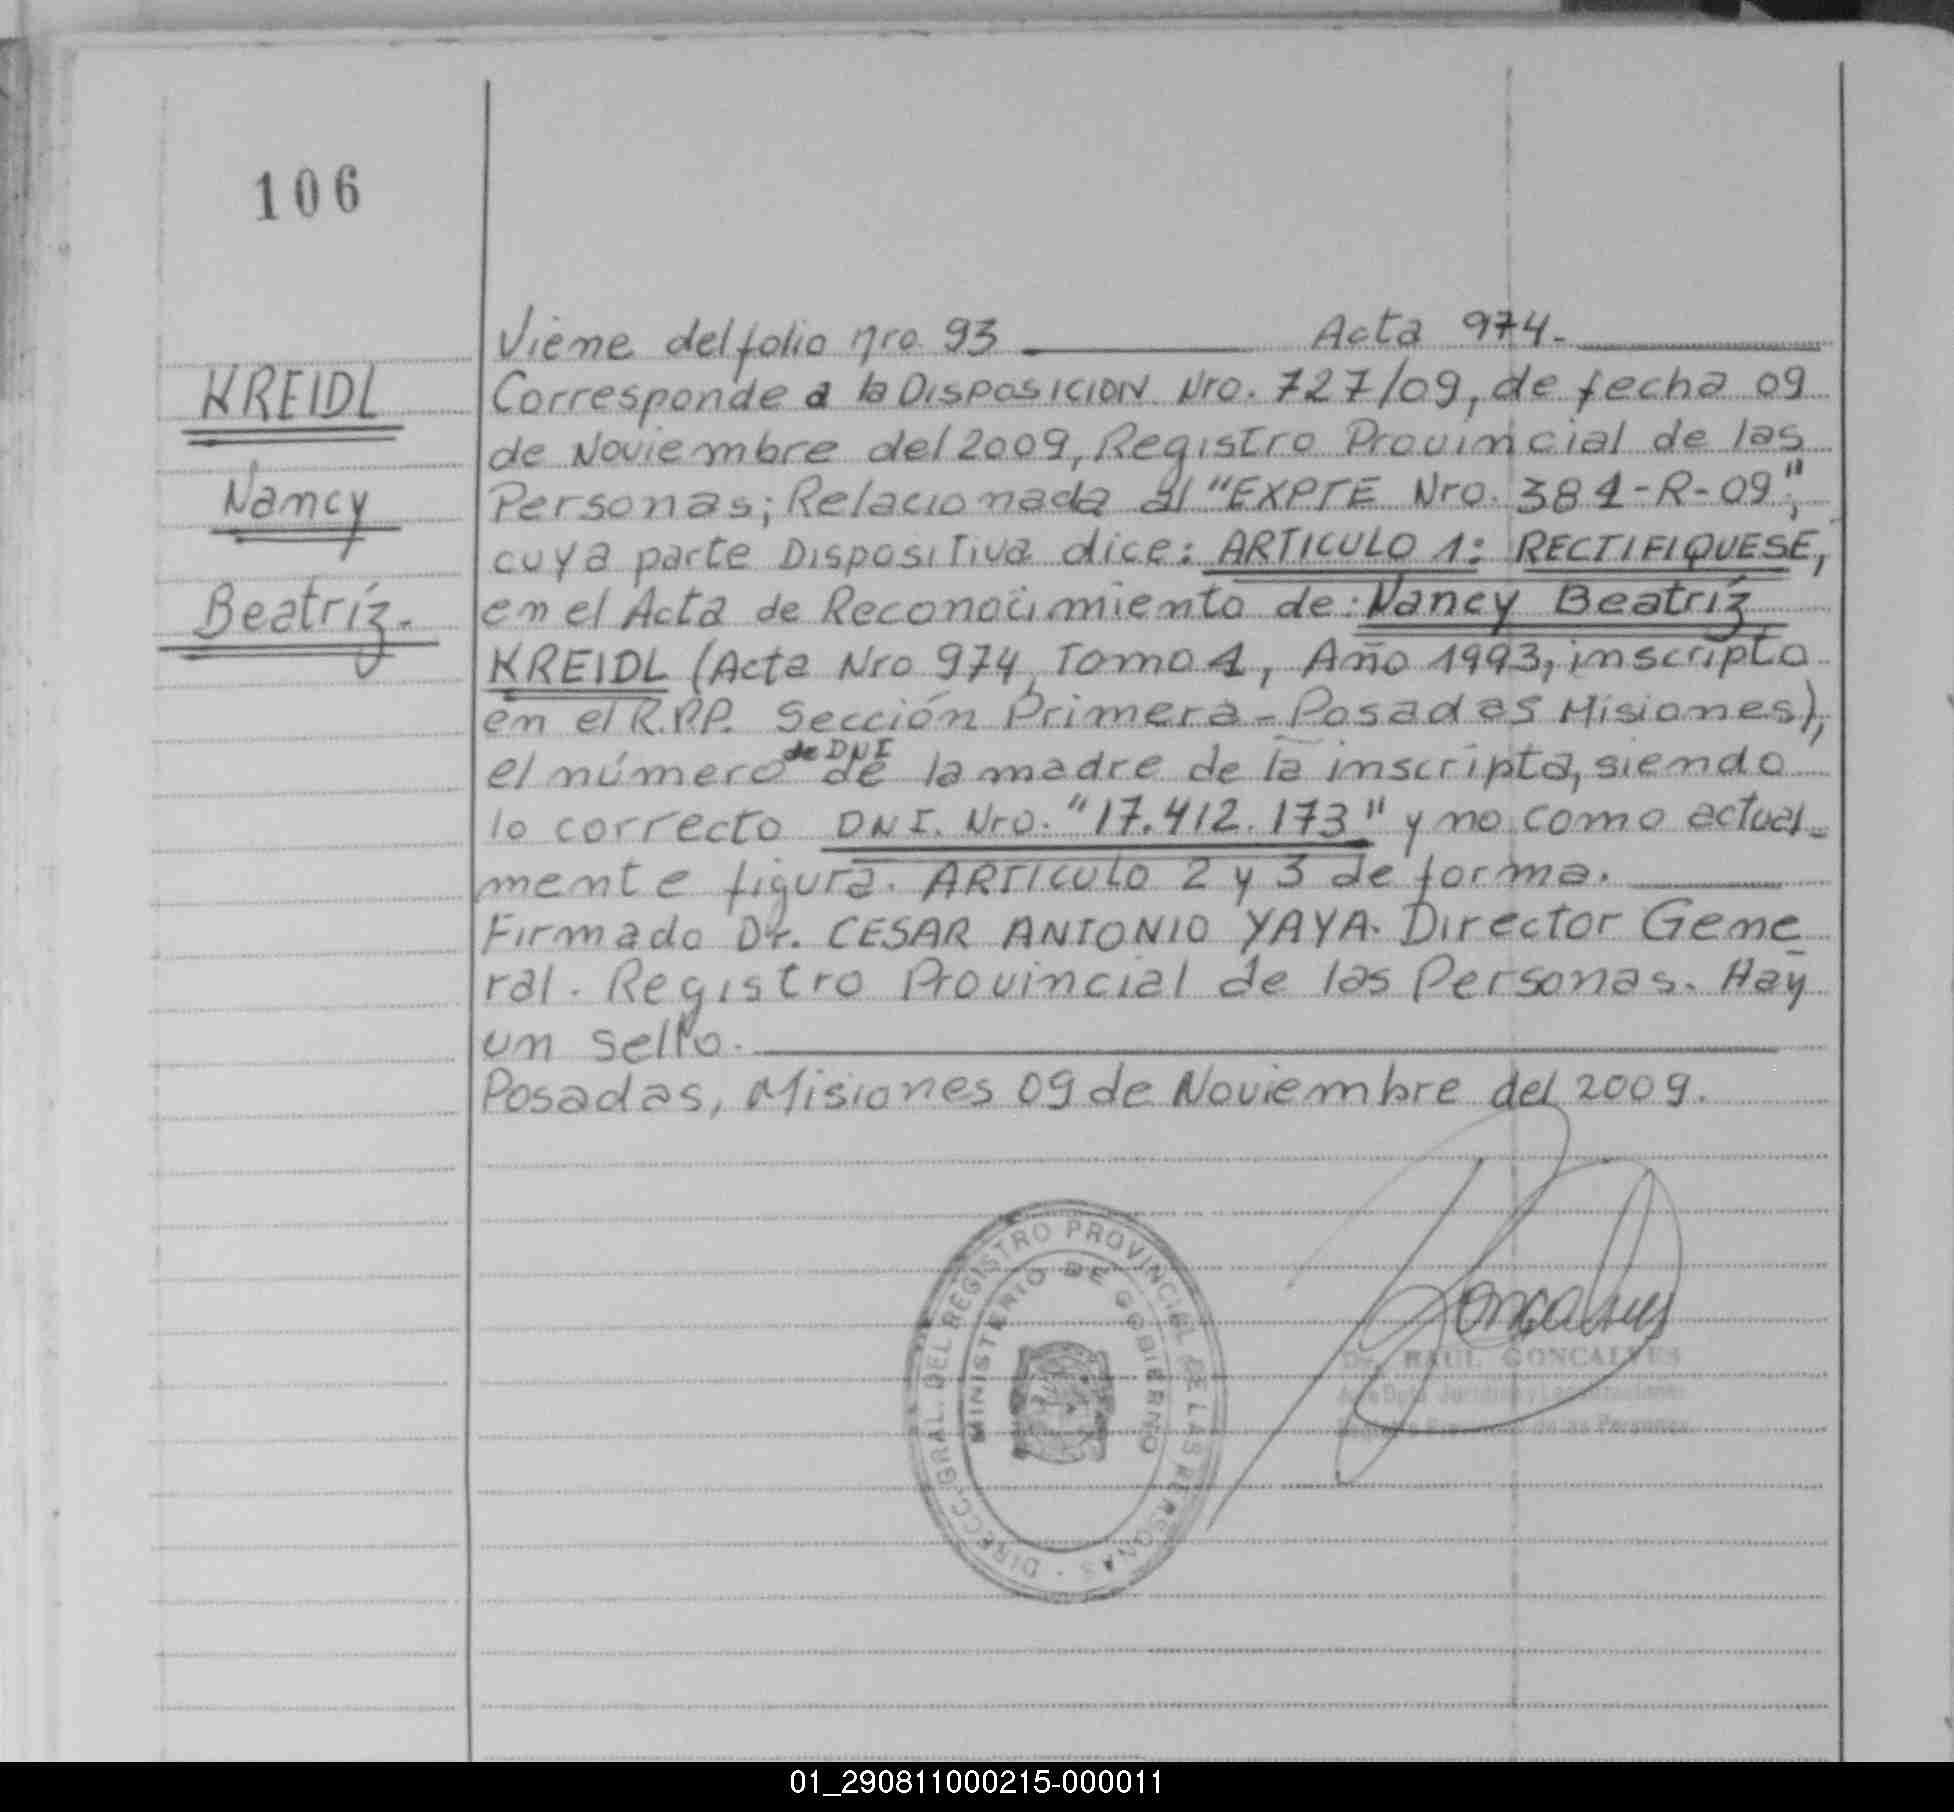 106
KREIDL
Nancy
Beatríz.
Viene del folio nro 93 Acta 974.
Corresponde a la DISPOSICION Nro. 727/09, de fecha 09
de Noviembre del 2009, Registro Provincial de las
Personas; Relacionada al "EXPTE Nro. 381-R-09",
cuya parte Dispositiva dice: ARTICULO 1: RECTIFIQUESE,
en el Acta de Reconocimiento de: Nancy Beatríz
KREIDL (Acta Nro 974, Tomo 1, Año 1993, inscripto
en el R.P.P. Sección Primera - Posadas Misiones),
de DNI
el número de la madre de la inscripta, siendo
lo correcto DNI. Nro. "17.412.173" y no como actual-
mente figura. ARTICULO 2 y 3 de forma.
Firmado Dr. CESAR ANTONIO YAYA. Director Gene
ral. Registro Provincial de las Personas. Hay
un sello.
Posadas, Misiones 09 de Noviembre del 2009.
DIRECC. GRAL. DEL REGISTRO PROVINCIAL DE LAS PERSONAS
MINISTERIO DE GOBIERNO
Goncalves
Dr. RAUL GONCALVES
Registro Provincial de las Personas
01_290811000215-000011